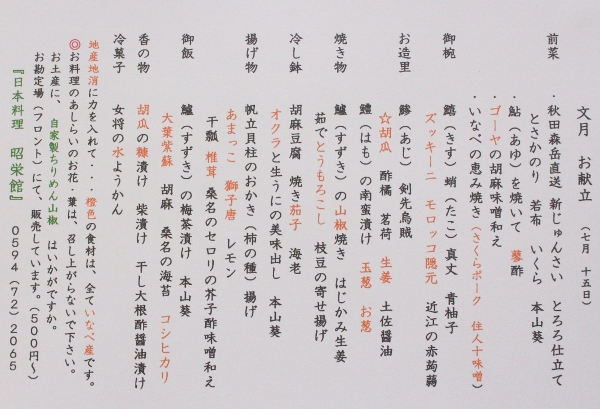 文月　お献立　（七月　十五日）
前菜　・秋田森岳直送　新じゅんさい　とろろ仕立て
とさかのり　若布　いくら　本山葵
・鮎（あゆ）を焼いて　蓼酢
・ゴーヤの胡麻味噌和え
・いなべの恵み焼き（さくらポーク　住人十味噌）
御椀　鱚（きす）蛸（たこ）真丈　青柚子
ズッキーニ　モロッコ隠元　近江の赤蒟蒻
お造里　鯵（あじ）　剣先烏賊
☆胡瓜　酢橘　茗荷　生姜　土佐醤油
鱧（はも）の南蛮漬け　玉葱　お葱
焼き物　鱸（すずき）の山椒焼き　はじかみ生姜
茹でとうもろこし　枝豆の寄せ揚げ
冷し鉢　胡麻豆腐　焼き茄子　海老
オクラと生うにの美味出し　本山葵
揚げ物　帆立貝柱のおかき（柿の種）揚げ
あまっこ　獅子唐　レモン
干瓢　椎茸　桑名のセロリの芥子酢味噌和え
御飯　鱸（すずき）の梅茶漬け　本山葵
大葉紫蘇　胡麻　桑名の海苔　コシヒカリ
香の物　胡瓜の糠漬け　柴漬け　干し大根酢醤油漬け
冷菓子　女将の水ようかん
地産地消に力を入れて・・・橙色の食材は、全ていなべ産です。
◎お料理のあしらいのお花・葉は、召し上がらないで下さい。
お土産に、　自家製ちりめん山椒　はいかがですか。
お勘定場（フロント）にて、販売しています。（５００円～）
『日本料理　昭栄館』　０５９４（７２）２０６５